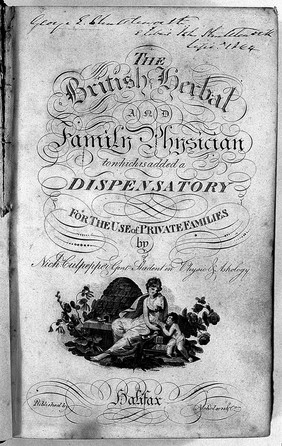 George E. Shuttleworth
Sept. 1864
The
British Herbal
AND
Family Physician
to which is added a
DISPENSATORY
FOR THE USE of PRIVATE FAMILIES
by
Nich. Culpepper Gent. Student in Physic & Astrology
Halifax
Published by